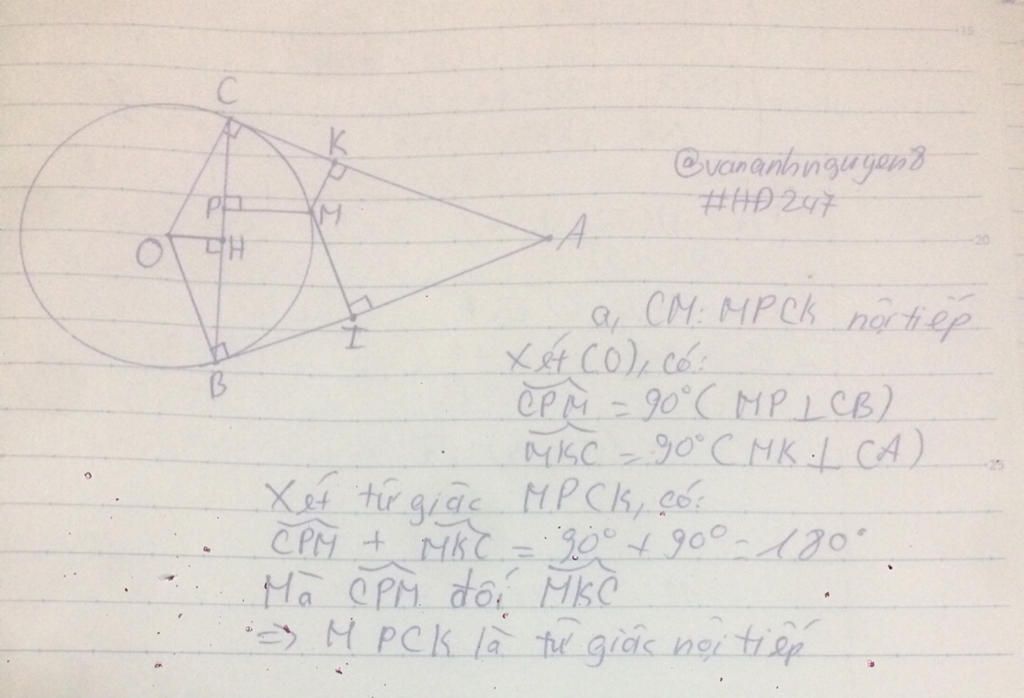 C
K
P
M
O
H
A
I
B
@vananhnguyen8
#HĐ247
a, CM: MPCK nội tiếp
Xét (O), có:
CPM = 90° ( MP⊥CB)
MKC = 90° ( MK⊥ CA)
Xét tứ giác MPCK, có:
CPM + MKC = 90° + 90° = 180°
Mà CPM đối MKC
=> MPCK là tứ giác nội tiếp
15
20
25